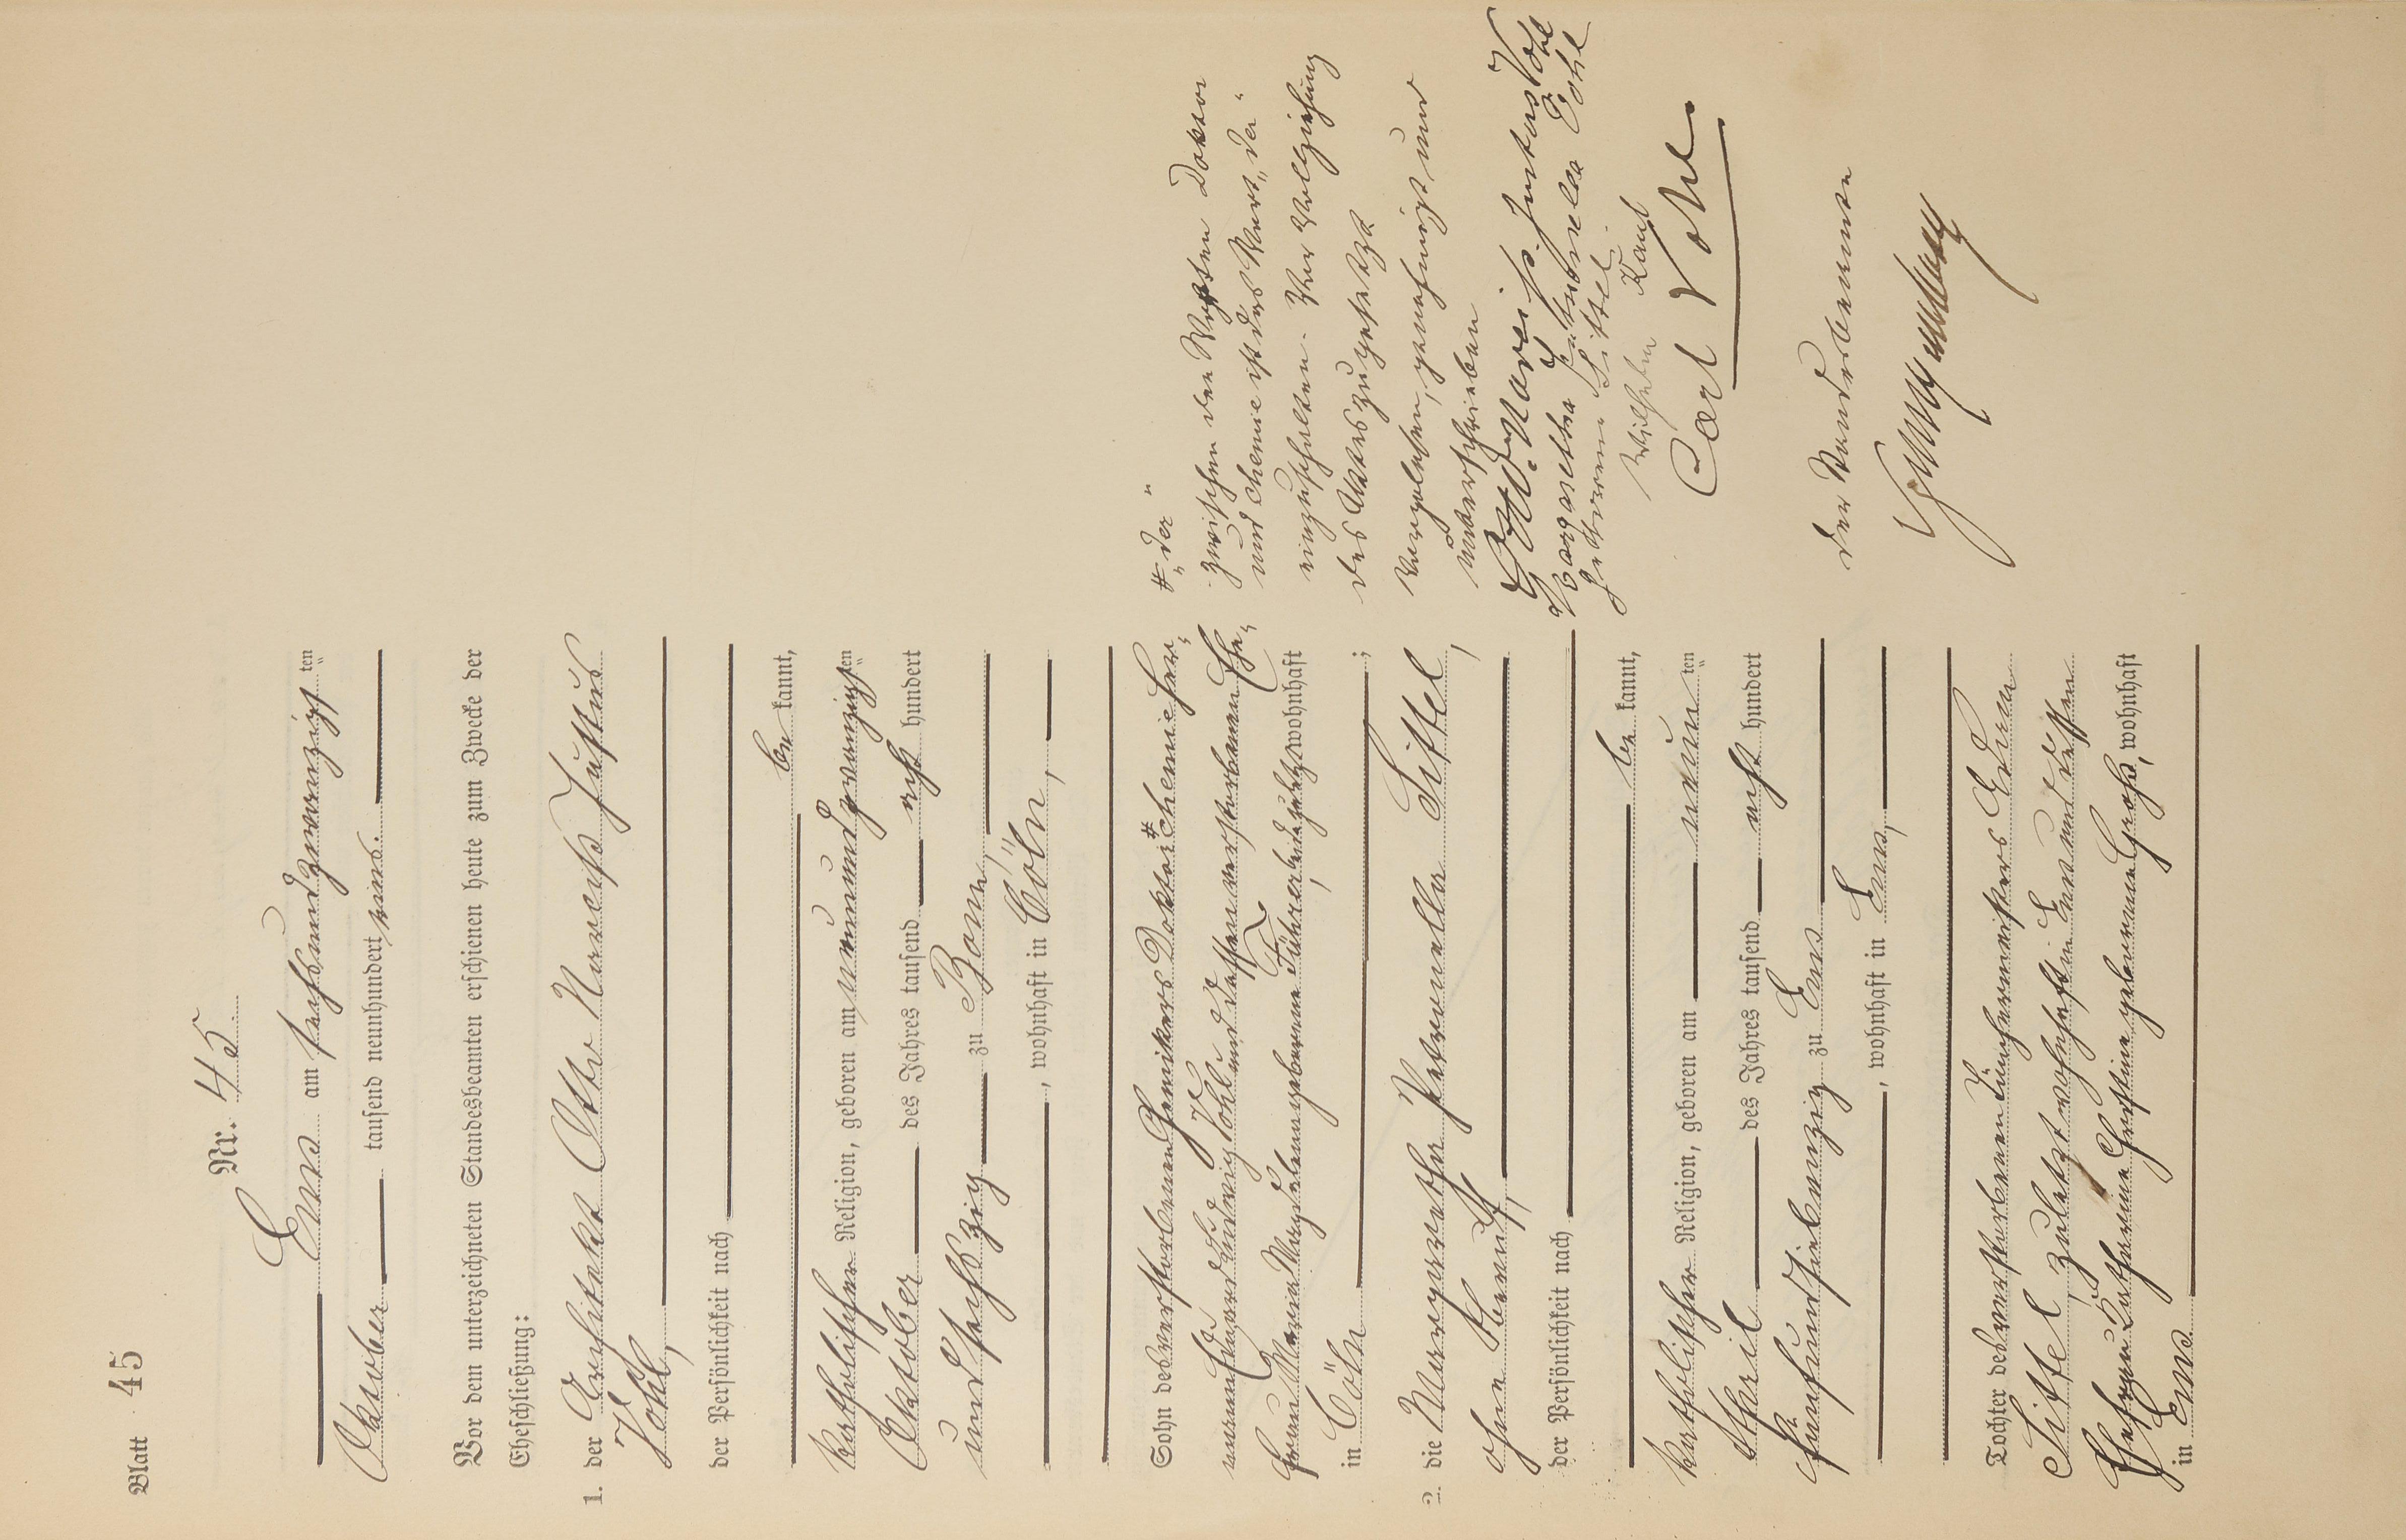 Blatt 45
Nr. 45
Ems am sechsundzwanzigsten
Oktober tausend neunhundert eins.
Vor dem unterzeichneten Standesbeamten erschienen heute zum Zwecke der
Eheschließung:
1. der Architekt Otto Narciss Justus
Vohl,
der Persönlichkeit nach
bekannt,
katholischer Religion, geboren am neunundzwanzigsten
Oktober des Jahres tausend acht hundert
undsechszig zu Bonn,
, wohnhaft in Cöln,
Sohn des verstorbenen Chemikers Doktor # Chemie Her-
mann Eduard Ludwig Vohl und dessen verstorbenen Ehe-
frau Maria Magdalena geborene Führer, beide zuletzt wohnhaft
in Cöln ;
2. die Margaretha Petronella Sittel,
ohne Beruf,
der Persönlichkeit nach
bekannt,
katholischer Religion, geboren am neunten
April des Jahres tausend acht hundert
fünfundsiebenzig zu Ems
, wohnhaft in Ems,
Tochter des verstorbenen Tünchermeisters
Sittel, zuletzt wohnhaft in Ems und dessen
Ehefrau Katharina Christine geborenen Groß, wohnhaft
in Ems
# „der"
zwischen den Worten Doktor
und Chemie ist das Wort „der"
einzuschalten. Vor Vollziehung
des Aktes zugesetzt
Vorgelesen, genehmigt und
unterschrieben
Otto Narciss Justus Vohl
Margaretha Petronella Vohl
geborene Sittel.
Wilhelm Kaul
Carl Vohl
Der Standesbeamte